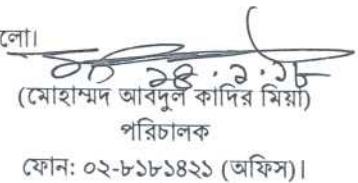 লো।
২৪.১.১৮
(মোহাম্মদ আবদুল কাদির মিয়া)
পরিচালক
ফোন: ০২-৮১৮১৪২১ (অফিস)।